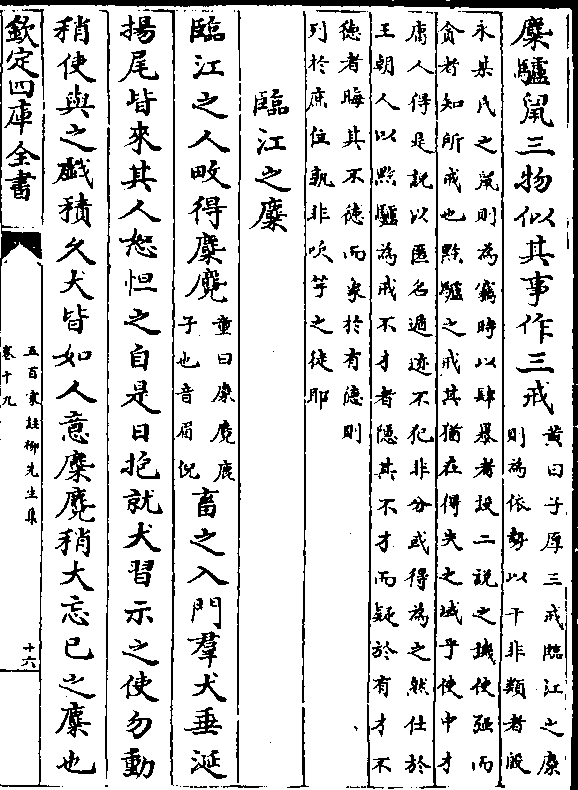 麋驢鼠三物似其事作三戒
黄曰子厚三戒臨江之麋
則為依勢以干非類者設
永某氏之鼠則為竊時以肆暴者設二說之譏使强而
貪者知所戒也黔驢之戒其猶在得失之域乎使中才
庸人得是說以匿名遁迹不犯非分或得為之然仕於
王朝人以黔驢為戒不才者隱其不才而疑於有才不
徳者晦其不徳而象於有徳則
列於庶位孰非吹竽之徒耶
臨江之麋
臨江之人畋得麋麑
童曰麋麑鹿
子也音眉倪
畜之入門羣犬垂涎
揚尾皆來其人怒怛之自是日抱就犬習示之使勿動
稍使與之戲積久犬皆如人意麋麑稍大忘己之麋也
欽定四庫全書
五百家註柳先生集
卷十九
十六